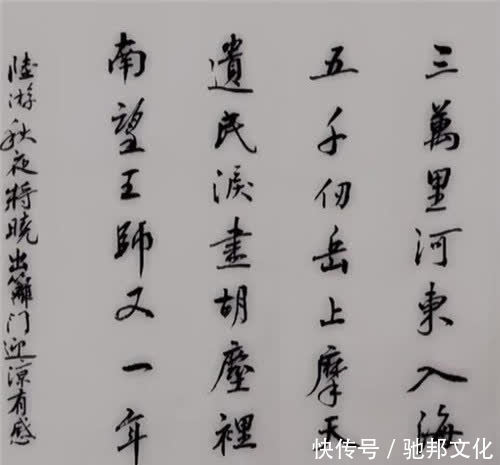 三萬里河東入海
五千仞岳上摩天
遺民淚盡胡塵裡
南望王師又一年
陸游秋夜將曉出籬门迎凉有感
快传号／驰邦文化